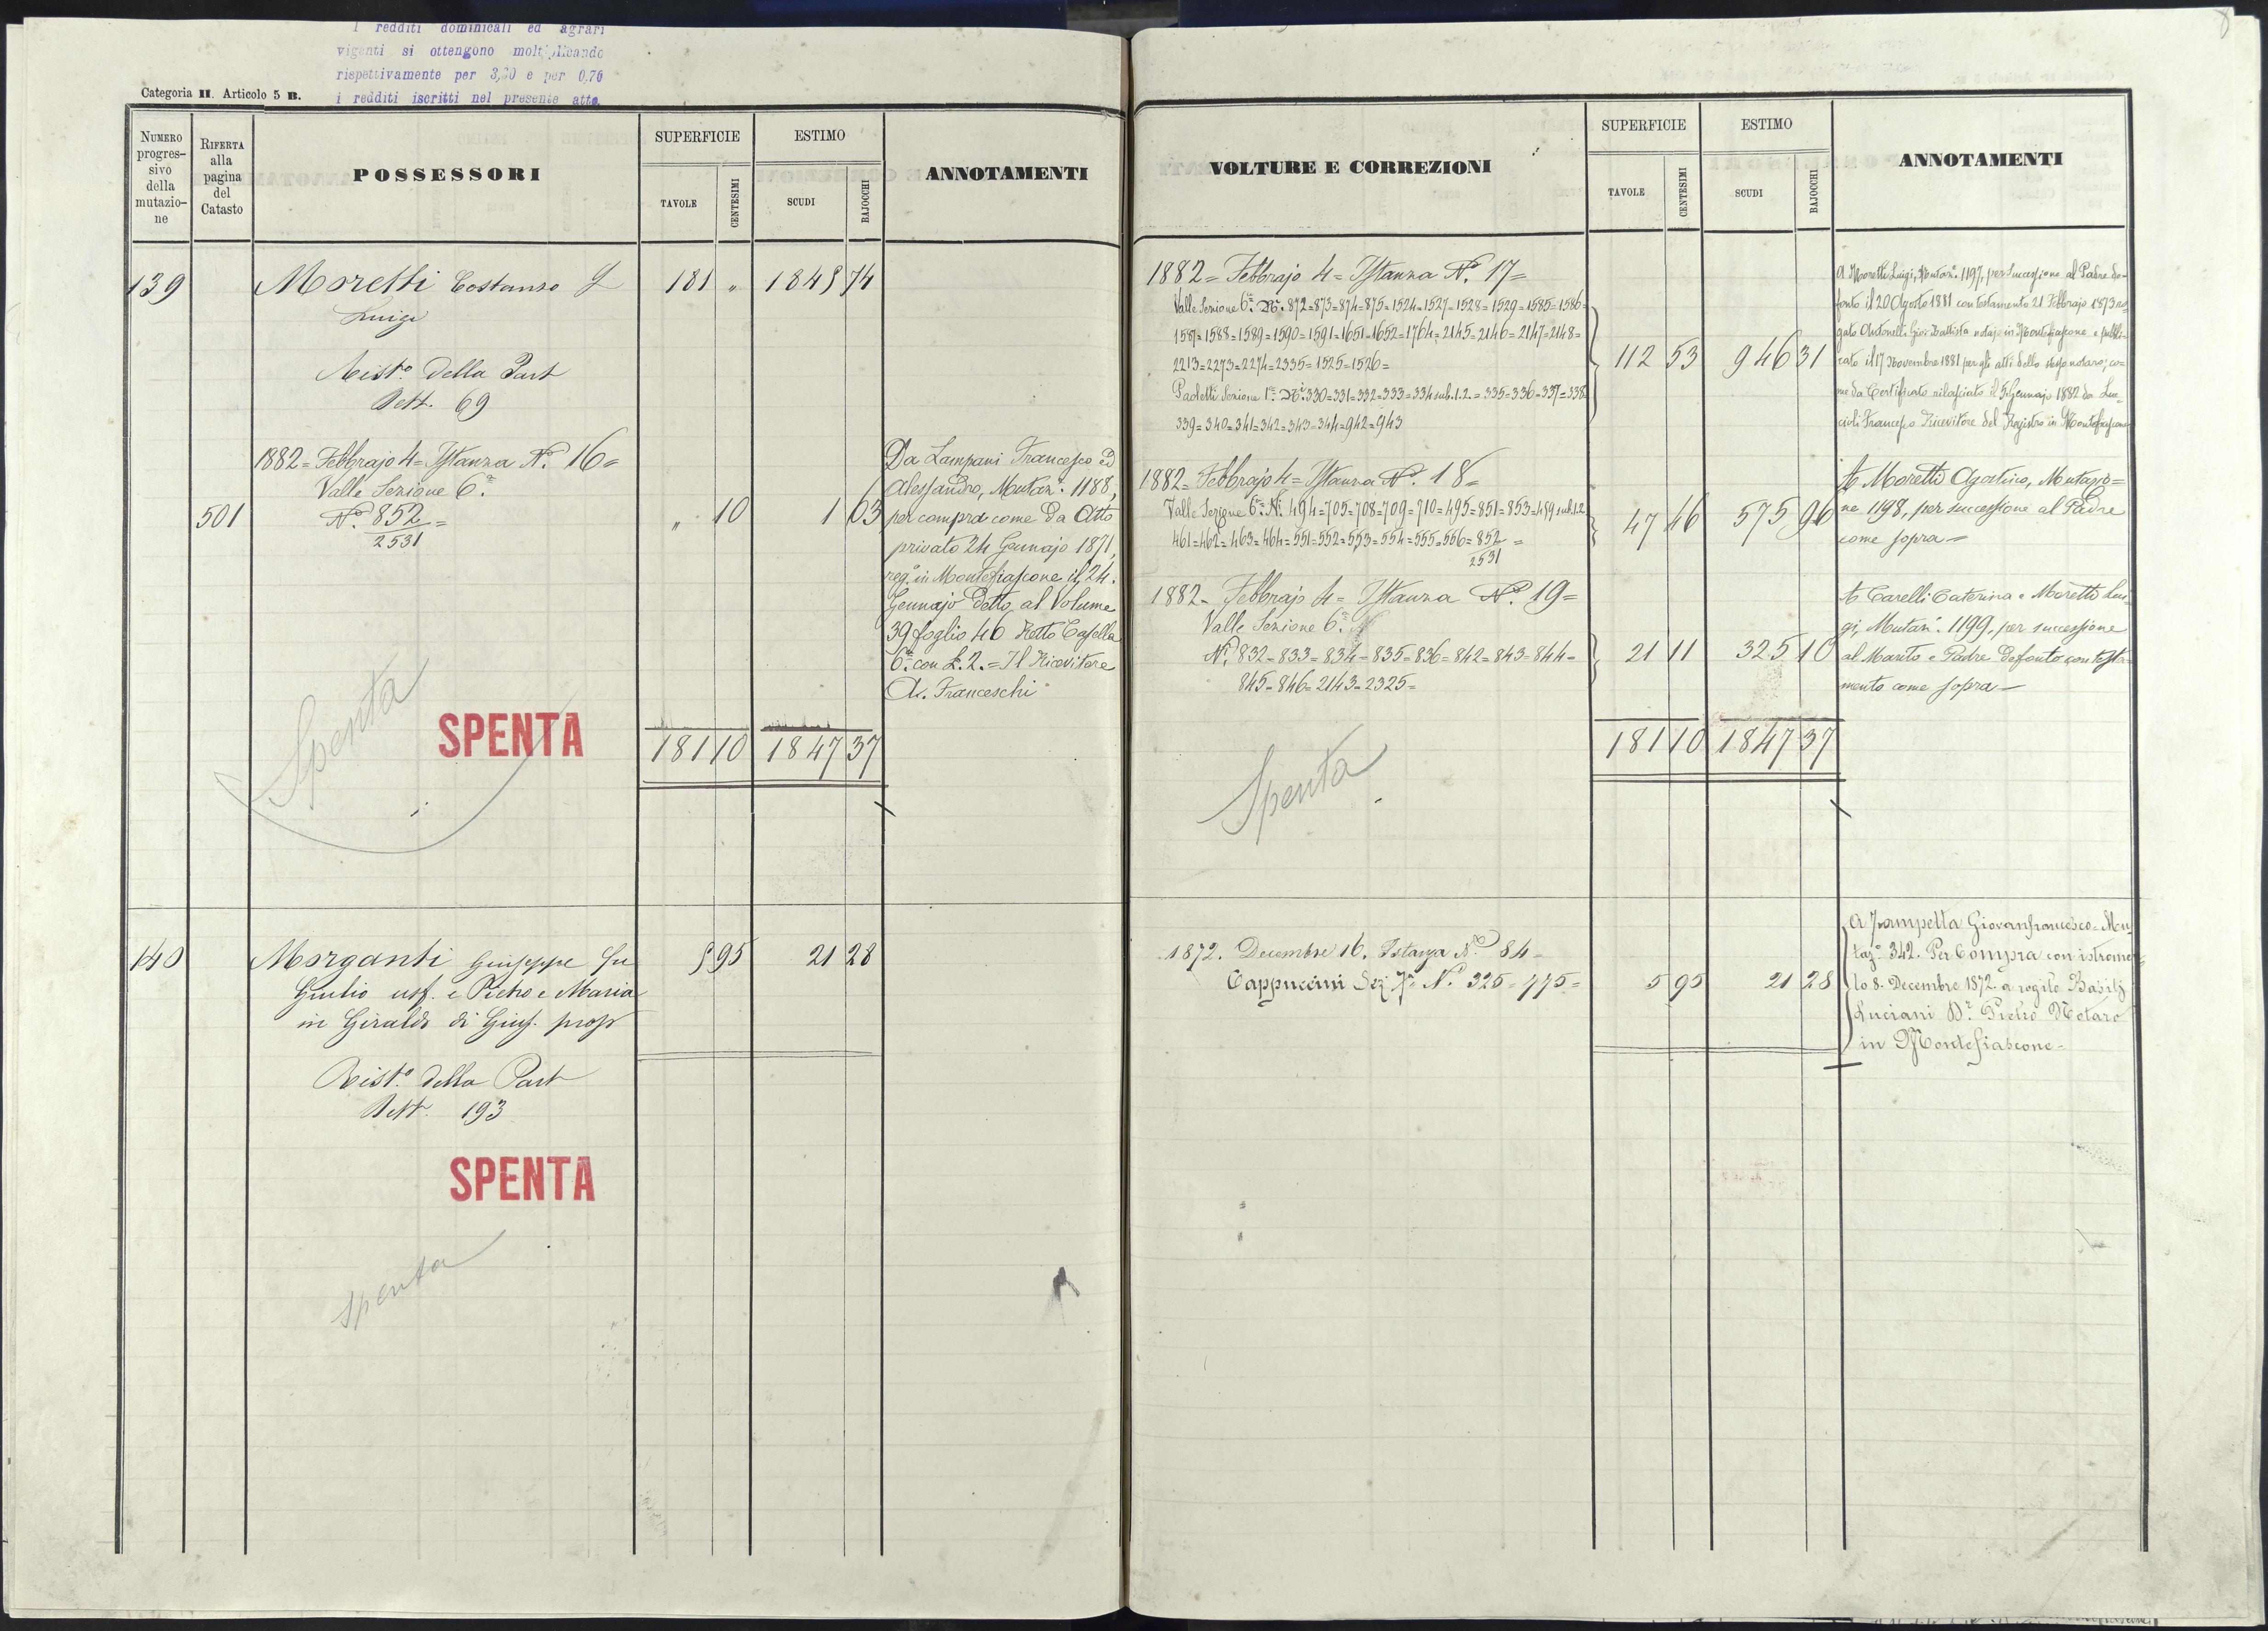 I redditi dominicali ed agrari
vigenti si ottengono moltiplicando
rispettivamente per 3,20 e per 0,70
i redditi iscritti nel presente atto.
Categoria II. Articolo 5 B.
NUMERO progres-sivo della mutazio-ne
RIFERTA alla pagina del Catasto
POSSESSORI
SUPERFICIE
TAVOLE
CENTESIMI
ESTIMO
SCUDI
BAJOCCHI
ANNOTAMENTI
139
Moretti Costanzo
Luigi
181 „ 1845 74
Rist.º della Part
Rett. 69
1882 = Febbrajo 4 = Istanza N.º 16 =
Valle Sezione 6.ª
501
N.º 852/2531 =
„ 10 1 63
Da Lampani Francesco ed
Alessandro, Mutaz.e 1188,
per compra come da Atto
privato 24 Gennajo 1871,
reg.º in Montefiascone il 24.
Gennajo detto, al Volume
39 foglio 46 Retto Casella
6.ª con £. 2. = Il Ricevitore
A. Franceschi
Spenta
SPENTA
181 10 1847 37
140
Morganti Giuseppe fu
Giulio usf. e Pietro e Maria
in Giraldo di Gius. prop
5 95 21 28
Rist.º della Part
Rett. 193
SPENTA
Spenta
8
VOLTURE E CORREZIONI
SUPERFICIE
TAVOLE
CENTESIMI
ESTIMO
SCUDI
BAJOCCHI
ANNOTAMENTI
1882 = Febbrajo 4 = Istanza N.º 17 =
Valle Sezione 6.ª N.i 872=873=874=875=1524=1527=1528=1529=1585=1586=
1587=1588=1589=1590=1591=1651=1652=1764=2145=2146=2147=2148=
2213=2273=2274=2335=1525=1526=
Paoletti Sezione 1.ª N.i 330=331=332=333=334 sub.1.2.=335=336=337=338=
339=340=341=342=343=344=942=943
112 53 946 31
A Moretti Luigi, Mutaz.e 1197, per successione al Padre de-
fonto il 20 Agosto 1881 con testamento 21 Febbrajo 1873 ro-
gato Antonelli Gio: Battista notajo in Montefiascone e pubbli-
cato il 17 Novembre 1881 per gli atti dello stesso notaro; co-
me da Certificato rilasciato il 5 Gennajo 1882 da Lu-
cioli Francesco Ricevitore del Registro in Montefiascone
1882 = Febbrajo 4 = Istanza N.º 18 =
Valle Sezione 6.ª N.i 494=705=708=709=710=495=851=853=459 sub.1.2
461=462=463=464=551=552=553=554=555=556=852/2531 =
47 46 575 96
A Moretti Agostino, Mutazio=
ne 1198, per successione al Padre
come sopra =
1882 = Febbrajo 4 = Istanza N.º 19 =
Valle Sezione 6.ª
N.i 832=833=834=835=836=842=843=844=
845=846=2143=2325=
21 11 325 10
A Carelli Caterina e Moretti Lui-
gi, Mutaz.e 1199, per successione
al Marito e Padre defonto con testa-
mento come sopra =
181 10 1847 37
Spenta
1872. Decembre 16. Istanza N.º 84 =
Cappuccini Sez. 7.ª N.i 325 = 775 =
5 95 21 28
A Zampetta Giovanfrancesco = Mu-
taz.e 342. Per Compra con istrome=
to 8. Decembre 1872. a rogito Basilj
Luciani D.r Pietro Notaro
in Montefiascone =